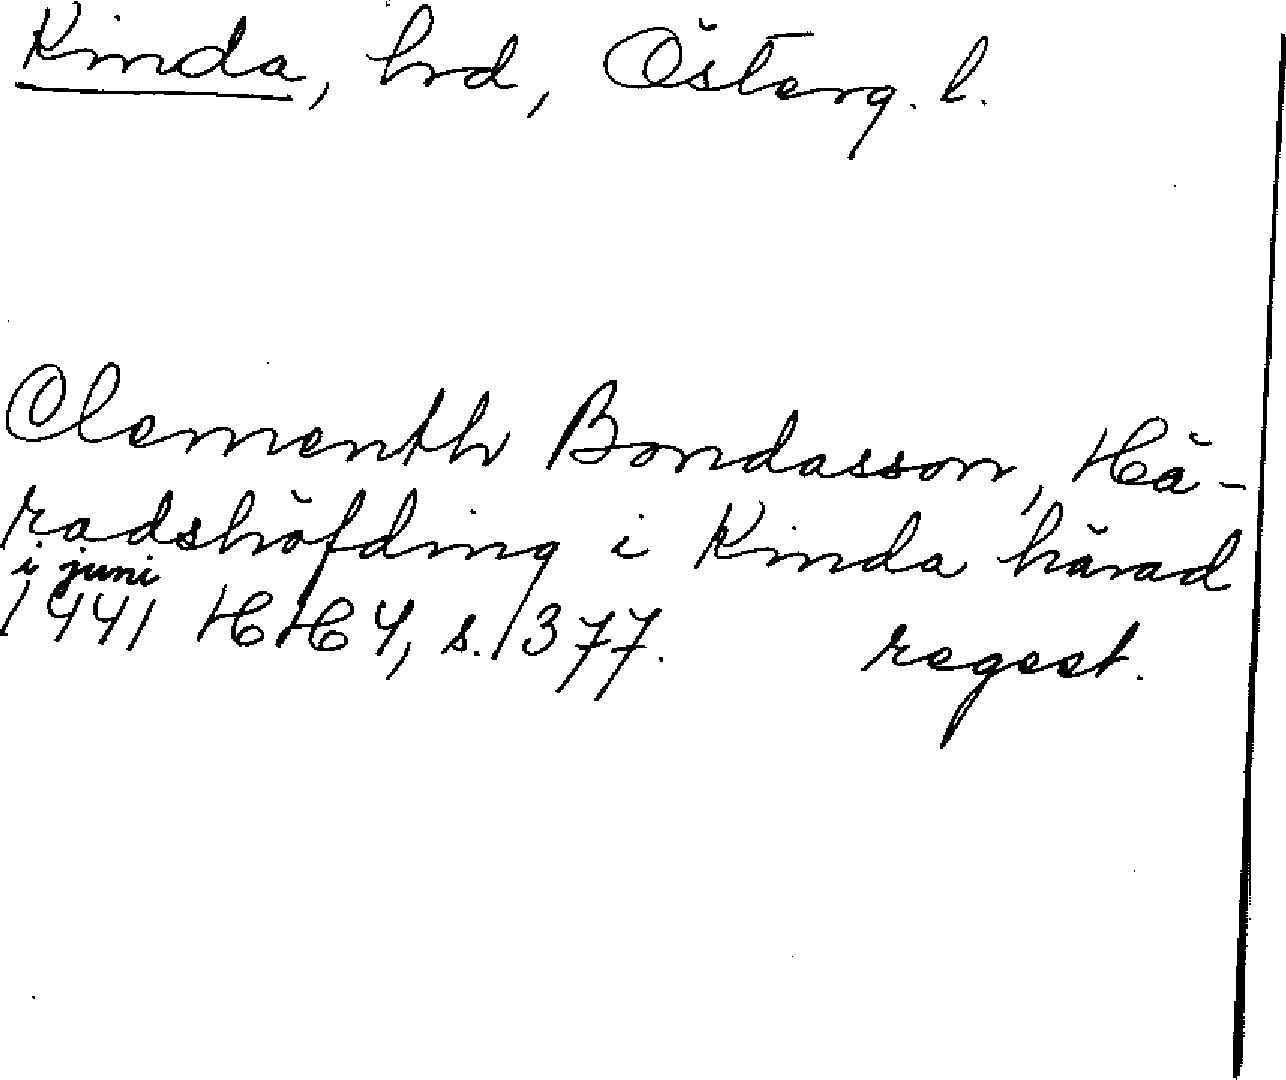 Kinda, hrd, Österg. l.
Clementh Bondasson, Hä-
radshöfding i Kinda härad
i juni
1441 HH 4, s. 1377. regest.